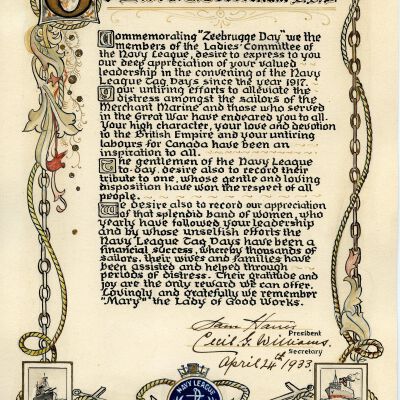 Commemorating "Zeebrugge Day" we the
members of the Ladies' Committee of
the Navy League, desire to express to you
our deep appreciation of your valued
leadership in the convening of the Navy
League Tag Days since the year 1917.
Your untiring efforts to alleviate the
distress amongst the sailors of the
Merchant Marine and those who served
in the Great War have endeared you to all.
Your high character, your love and devotion
to the British Empire and your untiring
labours for Canada have been an
inspiration to all.
The gentlemen of the Navy League
to-day, desire also to record their
tribute to one, whose gentle and loving
disposition have won the respect of all
people.
We desire also to record our appreciation
of that splendid band of women, who
yearly have followed your leadership
and by whose unselfish efforts the
Navy League Tag Days have been a
financial success, whereby thousands of
sailors, their wives and families have
been assisted and helped through
periods of distress. Their gratitude and
joy are the only reward we can offer.
Lovingly and gratefully we remember
"Mary" the Lady of Good Works.
Sam Harris
President
Cecil G. Williams.
Secretary
April 24th 1933
NAVY LEAGUE